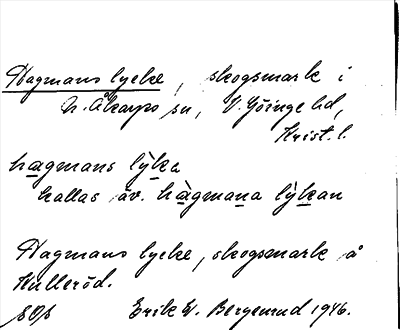 Hagmans lycke, skogsmark i
N. Åkarps sn, V. Göinge hd,
Krist. l.
hagmans lỳka
kallas äv. hàgmana lỳkan
Hagmans lycke, skogsmark å
Hulleröd.
Erik W. Bergenrud 1946.